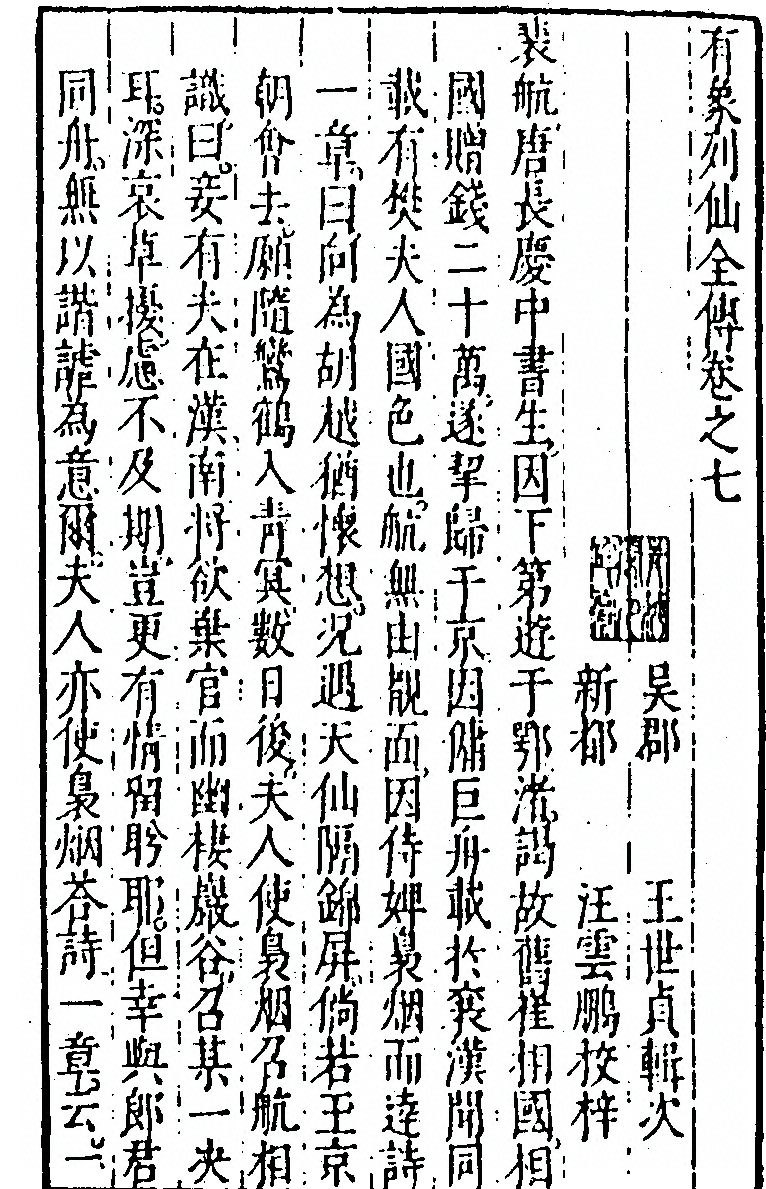 有象列仙全傳卷之七
吳郡 王世貞輯次
新都 汪雲鵬校梓
裴航唐長慶中書生因下第遊于鄂渚謁故舊崔相國相
國贈錢二十萬遂挈歸于京因傭巨舟載於襄漢聞同
載有樊夫人國色也航無由覿面因侍婢裊烟而達詩
一章曰向為胡越猶懷想况遇天仙隔錦屏倘若玉京
朝會去願隨鸞鶴入青冥數日後夫人使裊烟召航相
識曰妾有夫在漢南將欲棄官而幽棲巖谷召某一决
耳深哀草擾慮不及期豈更有情留盻耶但幸與郎君
同舟無以諧謔為意爾夫人亦使裊烟荅詩一章云一